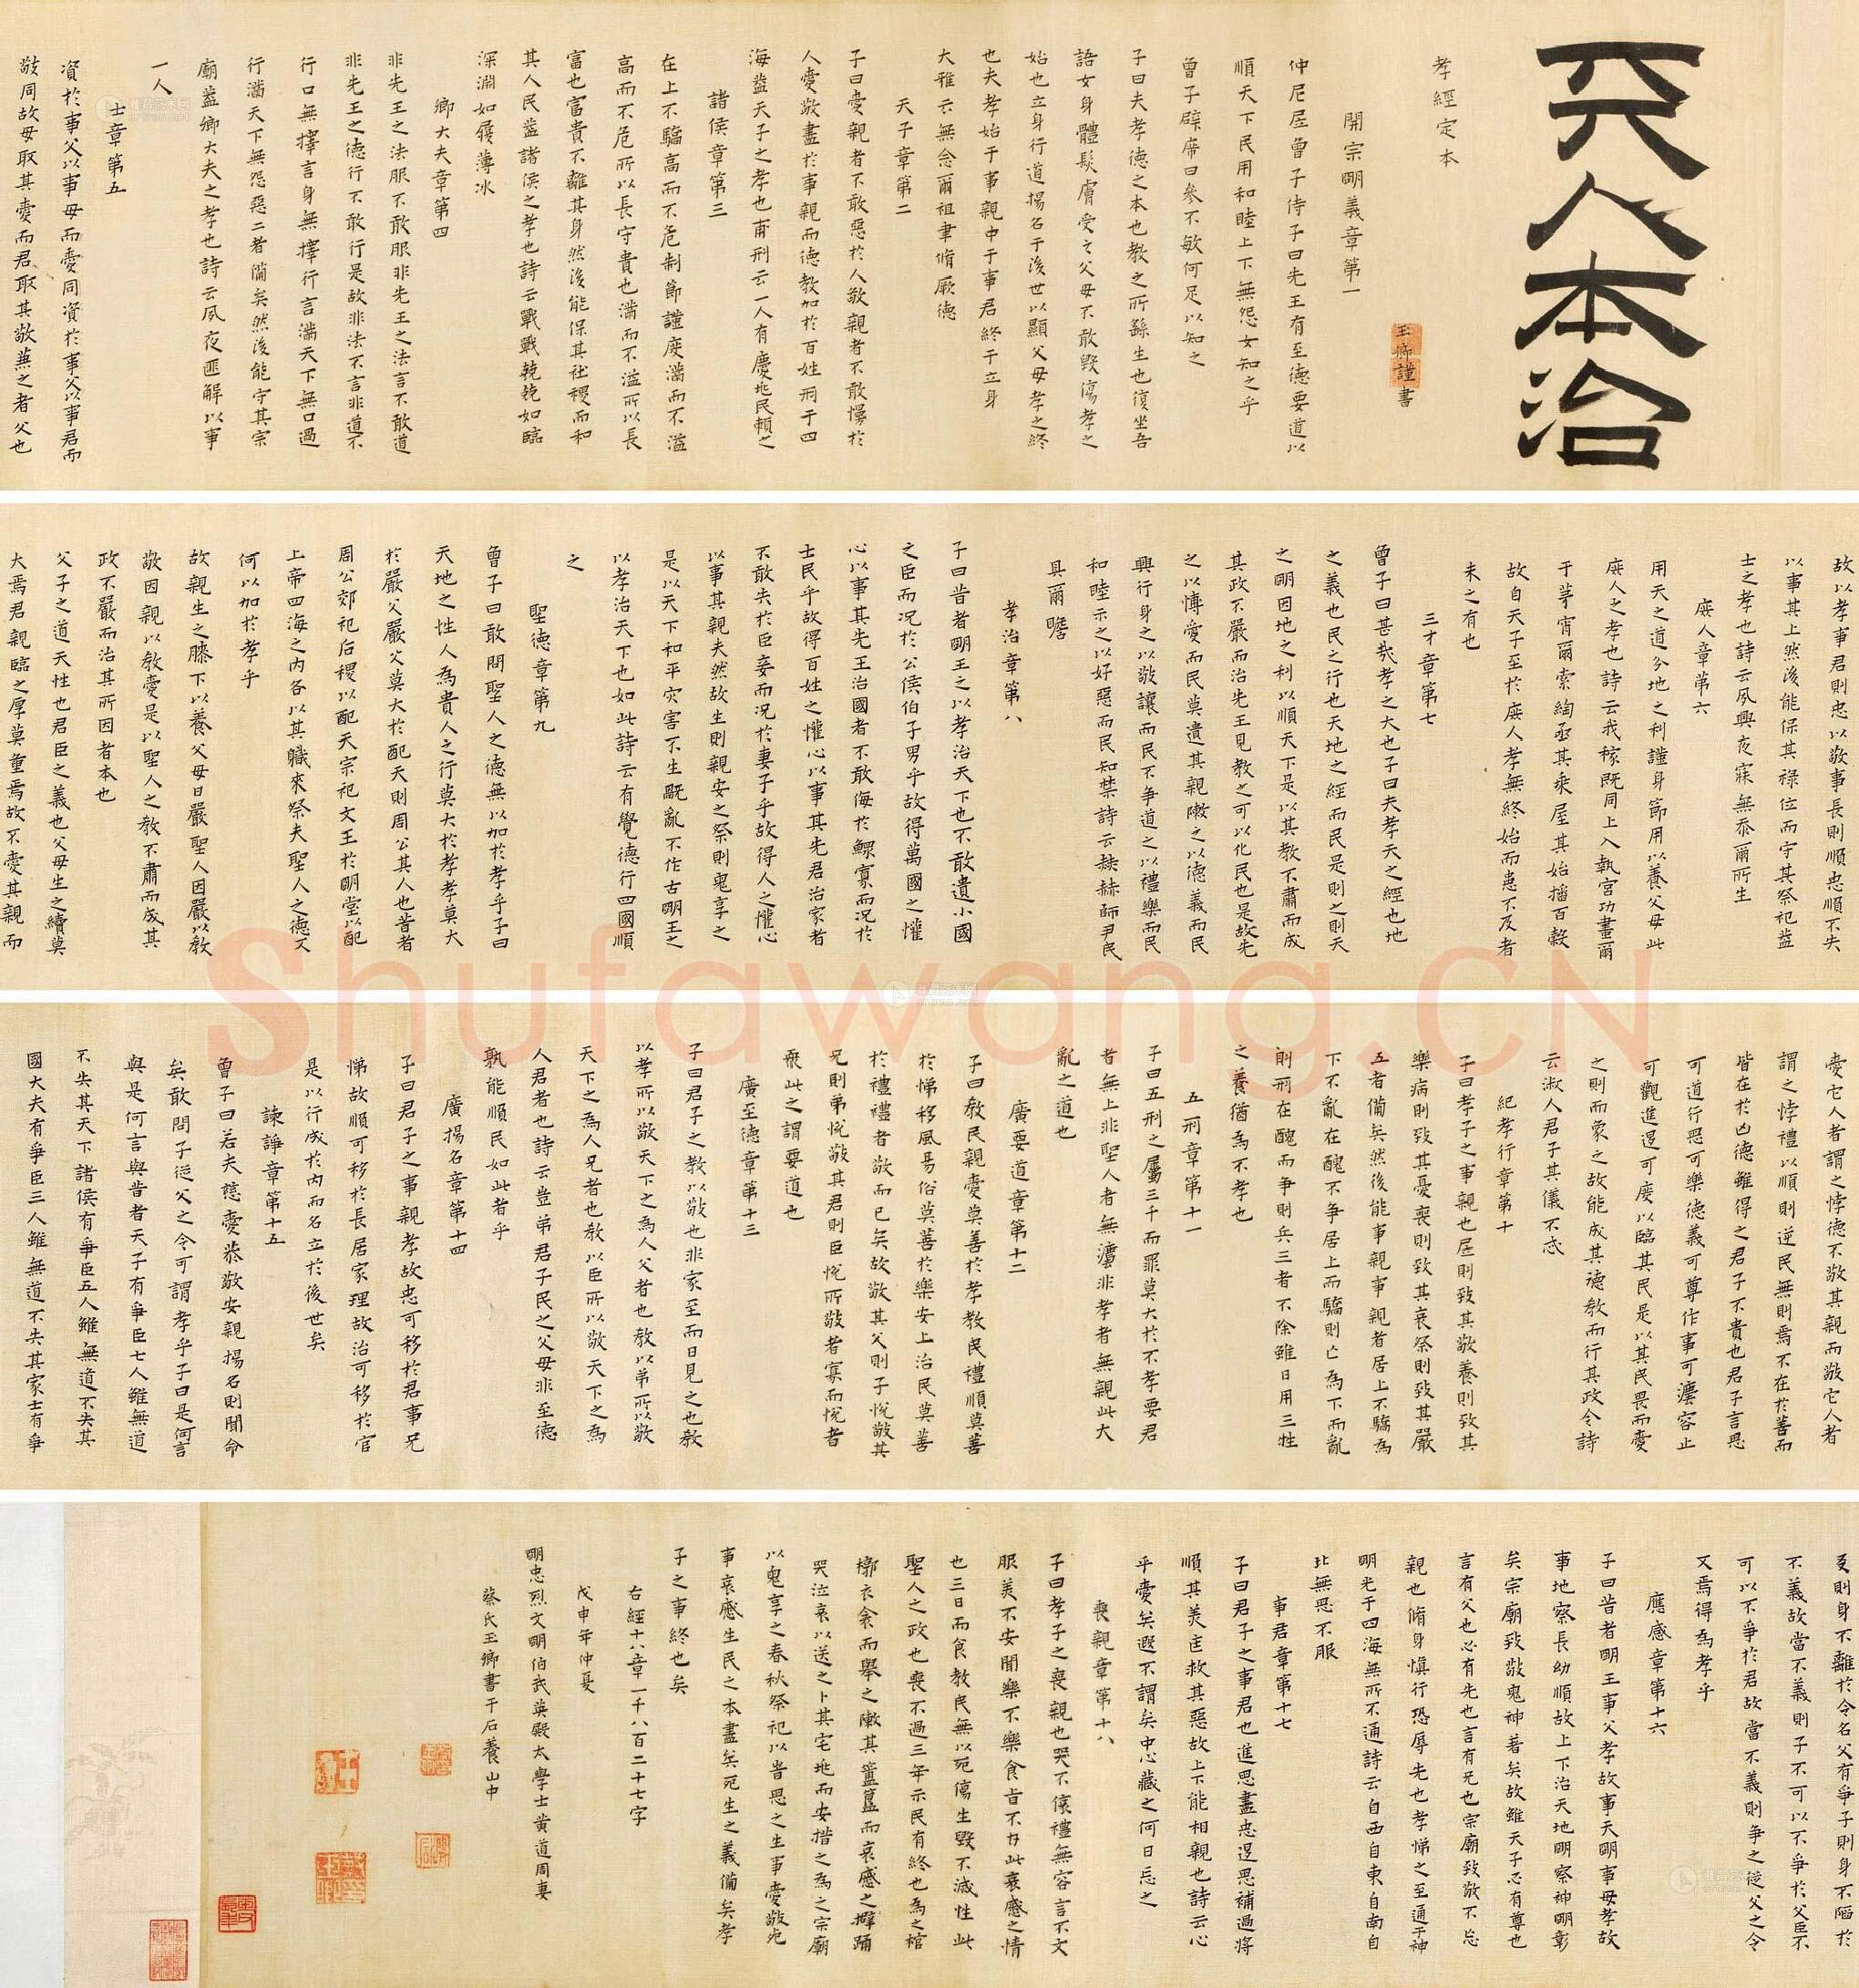 天人本治
孝經定本
玉卿謹書
開宗明義章第一
仲尼凥曾子侍子曰先王有至德要道以
順天下民用和睦上下無怨女知之乎
曾子辟席曰參不敏何足以知之
子曰夫孝德之本也教之所繇生也復坐吾
語女身體髮膚受之父母不敢毀傷孝之
始也立身行道揚名于後世以顯父母孝之終
也夫孝始于事親中于事君終于立身
大雅云無念爾祖聿脩厥德
天子章第二
子曰愛親者不敢惡於人敬親者不敢慢於
人愛敬盡於事親而德教加於百姓刑于四
海蓋天子之孝也甫刑云一人有慶兆民賴之
諸侯章第三
在上不驕高而不危制節謹度滿而不溢
高而不危所以長守貴也滿而不溢所以長
富也富貴不離其身然後能保其社稷而和
其人民蓋諸侯之孝也詩云戰戰兢兢如臨
深淵如履薄冰
卿大夫章第四
非先王之法服不敢服非先王之法言不敢道
非先王之德行不敢行是故非法不言非道不
行口無擇言身無擇行言滿天下無口過
行滿天下無怨惡三者備矣然後能守其宗
廟蓋卿大夫之孝也詩云夙夜匪懈以事
一人
士章第五
資於事父以事母而愛同資於事父以事君而
敬同故母取其愛而君取其敬兼之者父也
故以孝事君則忠以敬事長則順忠順不失
以事其上然後能保其祿位而守其祭祀蓋
士之孝也詩云夙興夜寐無忝爾所生
庶人章第六
用天之道分地之利謹身節用以養父母此
庶人之孝也詩云我稼既同上入執宮功晝爾
于茅宵爾索綯亟其乘屋其始播百穀
故自天子至於庶人孝無終始而患不及者
未之有也
三才章第七
曾子曰甚哉孝之大也子曰夫孝天之經也地
之義也民之行也天地之經而民是則之則天
之明因地之利以順天下是以其教不肅而成
其政不嚴而治先王見教之可以化民也是故先
之以博愛而民莫遺其親陳之以德義而民
興行身之以敬讓而民不爭道之以禮樂而民
和睦示之以好惡而民知禁詩云赫赫師尹民
具爾瞻
孝治章第八
子曰昔者明王之以孝治天下也不敢遺小國
之臣而況於公侯伯子男乎故得萬國之懽
心以事其先王治國者不敢侮於鰥寡而況於
士民乎故得百姓之懽心以事其先君治家者
不敢失於臣妾而況於妻子乎故得人之懽心
以事其親夫然故生則親安之祭則鬼享之
是以天下和平灾害不生禍亂不作古明王之
以孝治天下也如此詩云有覺德行四國順
之
聖德章第九
曾子曰敢問聖人之德無以加於孝乎子曰
天地之性人為貴人之行莫大於孝孝莫大
於嚴父嚴父莫大於配天則周公其人也昔者
周公郊祀后稷以配天宗祀文王於明堂以配
上帝四海之内各以其職來祭夫聖人之德又
何以加於孝乎
故親生之膝下以養父母日嚴聖人因嚴以教
敬因親以教愛是以聖人之教不肅而成其
政不嚴而治其所因者本也
父子之道天性也君臣之義也父母生之續莫
大焉君親臨之厚莫重焉故不愛其親而
愛它人者謂之悖德不敬其親而敬它人者
謂之悖禮以順則逆民無則焉不在於善而
皆在於凶德雖得之君子不貴也君子言思
可道行思可樂德義可尊作事可灋容止
可觀進退可度以臨其民是以其民畏而愛
之則而象之故能成其德教而行其政令詩
云淑人君子其儀不忒
紀孝行章第十
子曰孝子之事親也凥則致其敬養則致其
樂病則致其憂喪則致其哀祭則致其嚴
五者備矣然後能事親事親者居上不驕為
下不亂在醜不爭居上而驕則亡為下而亂
則刑在醜而爭則兵三者不除雖日用三牲
之養猶為不孝也
五刑章第十一
子曰五刑之屬三千而罪莫大於不孝要君
者無上非聖人者無灋非孝者無親此大
亂之道也
廣要道章第十二
子曰教民親愛莫善於孝教民禮順莫善
於悌移風易俗莫善於樂安上治民莫善
於禮禮者敬而已矣故敬其父則子悅敬其
兄則弟悅敬其君則臣悅所敬者寡而悅者
眾此之謂要道也
廣至德章第十三
子曰君子之教以敬也非家至而日見之也教
以孝所以敬天下之為人父者也教以弟所以敬
天下之為人兄者也教以臣所以敬天下之為
人君者也詩云豈弟君子民之父母非至德
孰能順民如此者乎
廣揚名章第十四
子曰君子之事親孝故忠可移於君事兄
悌故順可移於長居家理故治可移於官
是以行成於內而名立於後世矣
諫諍章第十五
曾子曰若夫慈愛恭敬安親揚名則聞命
矣敢問子從父之令可謂孝乎子曰是何言
與是何言與昔者天子有爭臣七人雖無道
不失其天下諸侯有爭臣五人雖無道不失其
國大夫有爭臣三人雖無道不失其家士有爭
友則身不離於令名父有爭子則身不陷於
不義故當不義則子不可以不爭於父臣不
可以不爭於君故當不義則爭之從父之令
又焉得為孝乎
應感章第十六
子曰昔者明王事父孝故事天明事母孝故
事地察長幼順故上下治天地明察神明彰
矣宗廟致敬鬼神著矣故雖天子必有尊也
言有父也必有先也言有兄也宗廟致敬不忘
親也脩身慎行恐辱先也孝悌之至通于神
明光于四海無所不通詩云自西自東自南自
北無思不服
事君章第十七
子曰君子之事君也進思盡忠退思補過將
順其美匡救其惡故上下能相親也詩云心
乎愛矣遐不謂矣中心藏之何日忘之
喪親章第十八
子曰孝子之喪親也哭不偯禮無容言不文
服美不安聞樂不樂食旨不甘此哀慼之情
也三日而食教民無以死傷生毀不滅性此
聖人之政也喪不過三年示民有終也為之棺
槨衣衾而舉之陳其簠簋而哀慼之擗踊
哭泣哀以送之卜其宅兆而安措之為之宗廟
以鬼享之春秋祭祀以時思之生事愛敬死
事哀慼生民之本盡矣死生之義備矣孝
子之事終也矣
右經十八章一千八百二十七字
戊申年仲夏
明忠烈文明伯武英殿太學士黃道周妻
蔡氏玉卿書于石養山中
Shufawang.CN